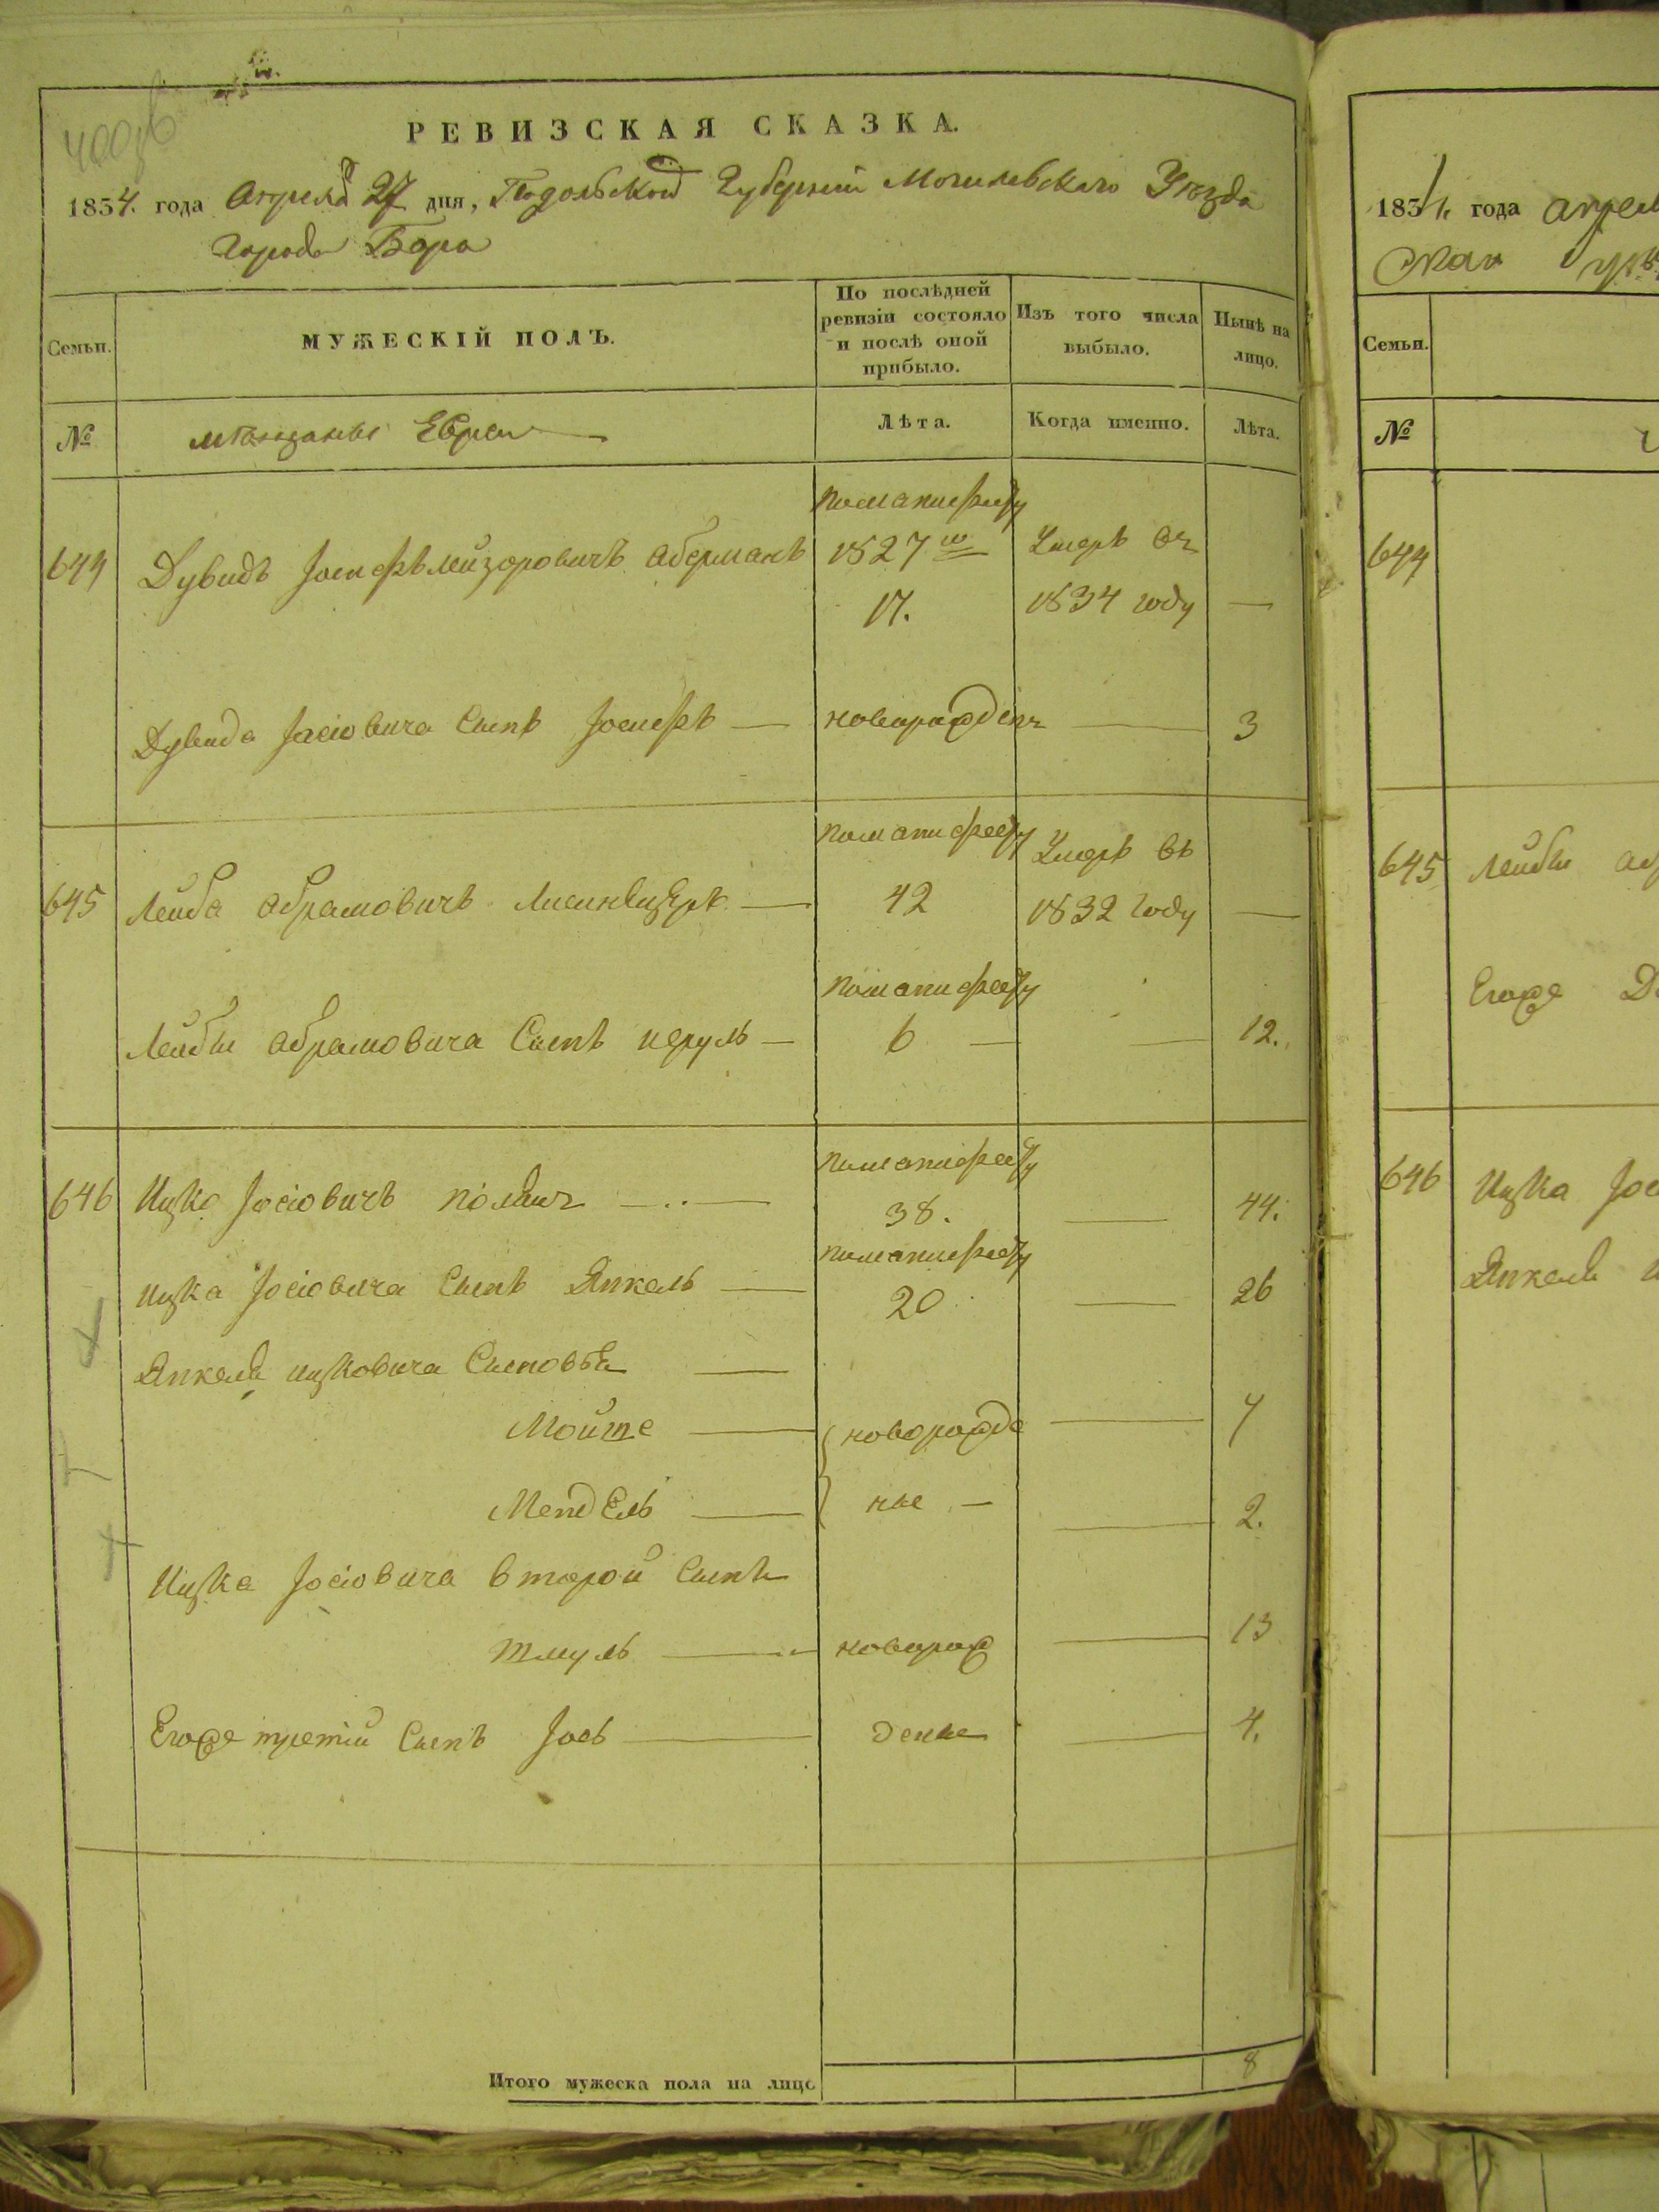 РЕВИЗСКАЯ СКАЗКА.
1834. года Апреля 27 дня, Подольской Губернии Могилевскаго Уезда
города Бара
Семьи.
МУЖЕСКІЙ ПОЛЪ.
По послѣдней ревизіи состояло и послѣ оной прибыло.
Изъ того числа выбыло.
Нынѣ на лицо.
№
мѣщане Евреи
Лѣта.
Когда именно.
Лѣта.
поманифесту
644 Дувидъ Іосифъ Лейзоровичъ Аберманъ 1827го Умеръ въ
17. 1834 году —
Дувида Іосіовича Сынъ Іосифъ — новорожденъ — 3
поманифесту Умеръ въ
645 Лейба Абрамовичъ — 42 1832 году —
поманифесту
Лейбы Абрамовича Сынъ — 6 — — 12.
поманифесту
646 Ицко Іосіовичъ — 38. — 44.
поманифесту
Ицка Іосіовича Сынъ Янкель — 20 — 26
Янкеля Ицковича Сыновья —
Мойше — новорожде — 7
Мендель — ные — — 2.
Ицка Іосіовича второй Сынъ
Шмуль — новорож — 13
Егоже третій Сынъ Іось — деные — 4.
Итого мужеска пола на лицо 8
1834 года апрел
Семьи.
№
644
645 Лейбы
Егоже
646 Ицка
Янкеля